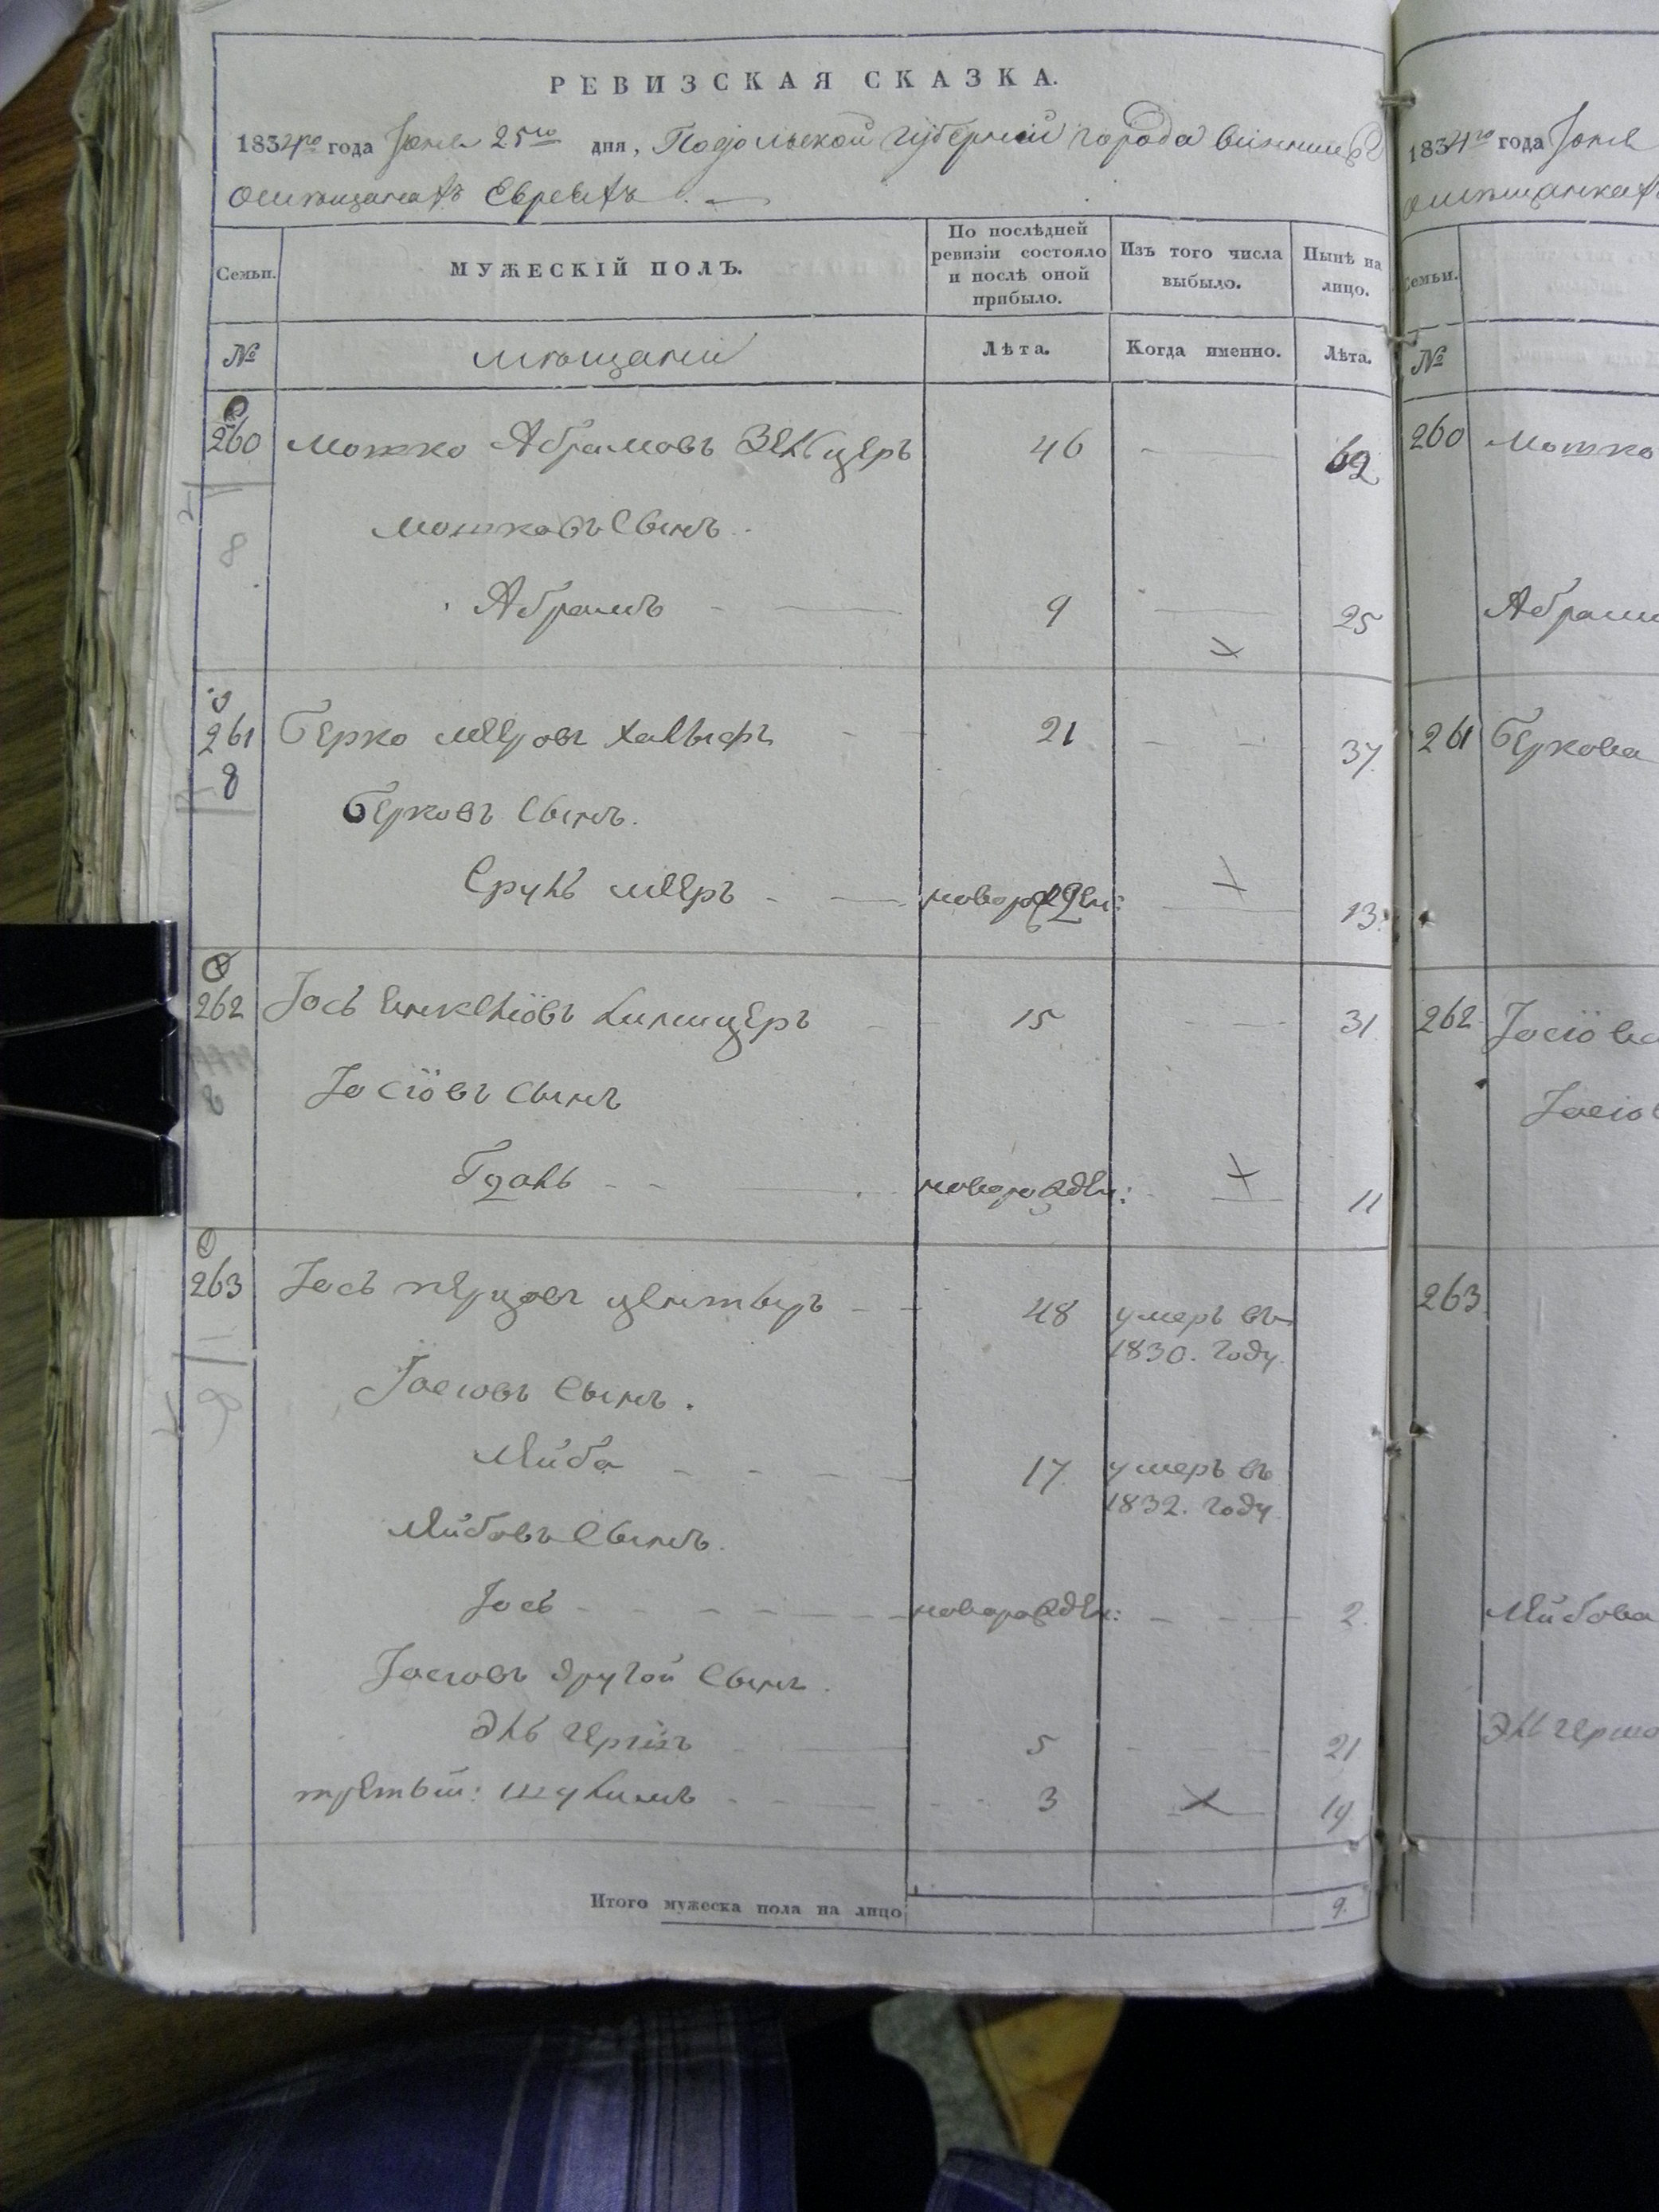 РЕВИЗСКАЯ СКАЗКА.
1834го года Іюня 25го дня, Подольской губерніи города Винницы
о мѣщанахъ Евреяхъ.
Семьи. МУЖЕСКІЙ ПОЛЪ. По послѣдней ревизіи состояло и послѣ оной прибыло. Изъ того числа выбыло. Нынѣ на лицо.
№ мѣщане Лѣта. Когда именно. Лѣта.
260 Мошко Абрамовъ Зелцеръ 46 62
Мошковъ Сынъ
8
Абрамъ 9 25
261 Берко Мееровъ 21 37
8
Берковъ Сынъ.
Сруль Мееръ новорожден: 13
262 Іось 15 31
8
Іосіовъ Сынъ
новорожден: 11
263 Іось Перцовъ 48 умеръ въ
1830. году.
Іосіовъ Сынъ.
Лейба 17 умеръ въ
1832. году.
Лейбовъ Сынъ.
Іось новорожден: 2
Іосіовъ другой Сынъ.
Эль Гершъ 5 21
третьій: 3 19
Итого мужеска пола на лицо 9.
1834го года Іюня
о мѣщанкахъ
Семьи.
№
260 Мошко
Абрам
261 Беркова
262 Іосіова
Іосіо
263
Лейбова
Эль Герш